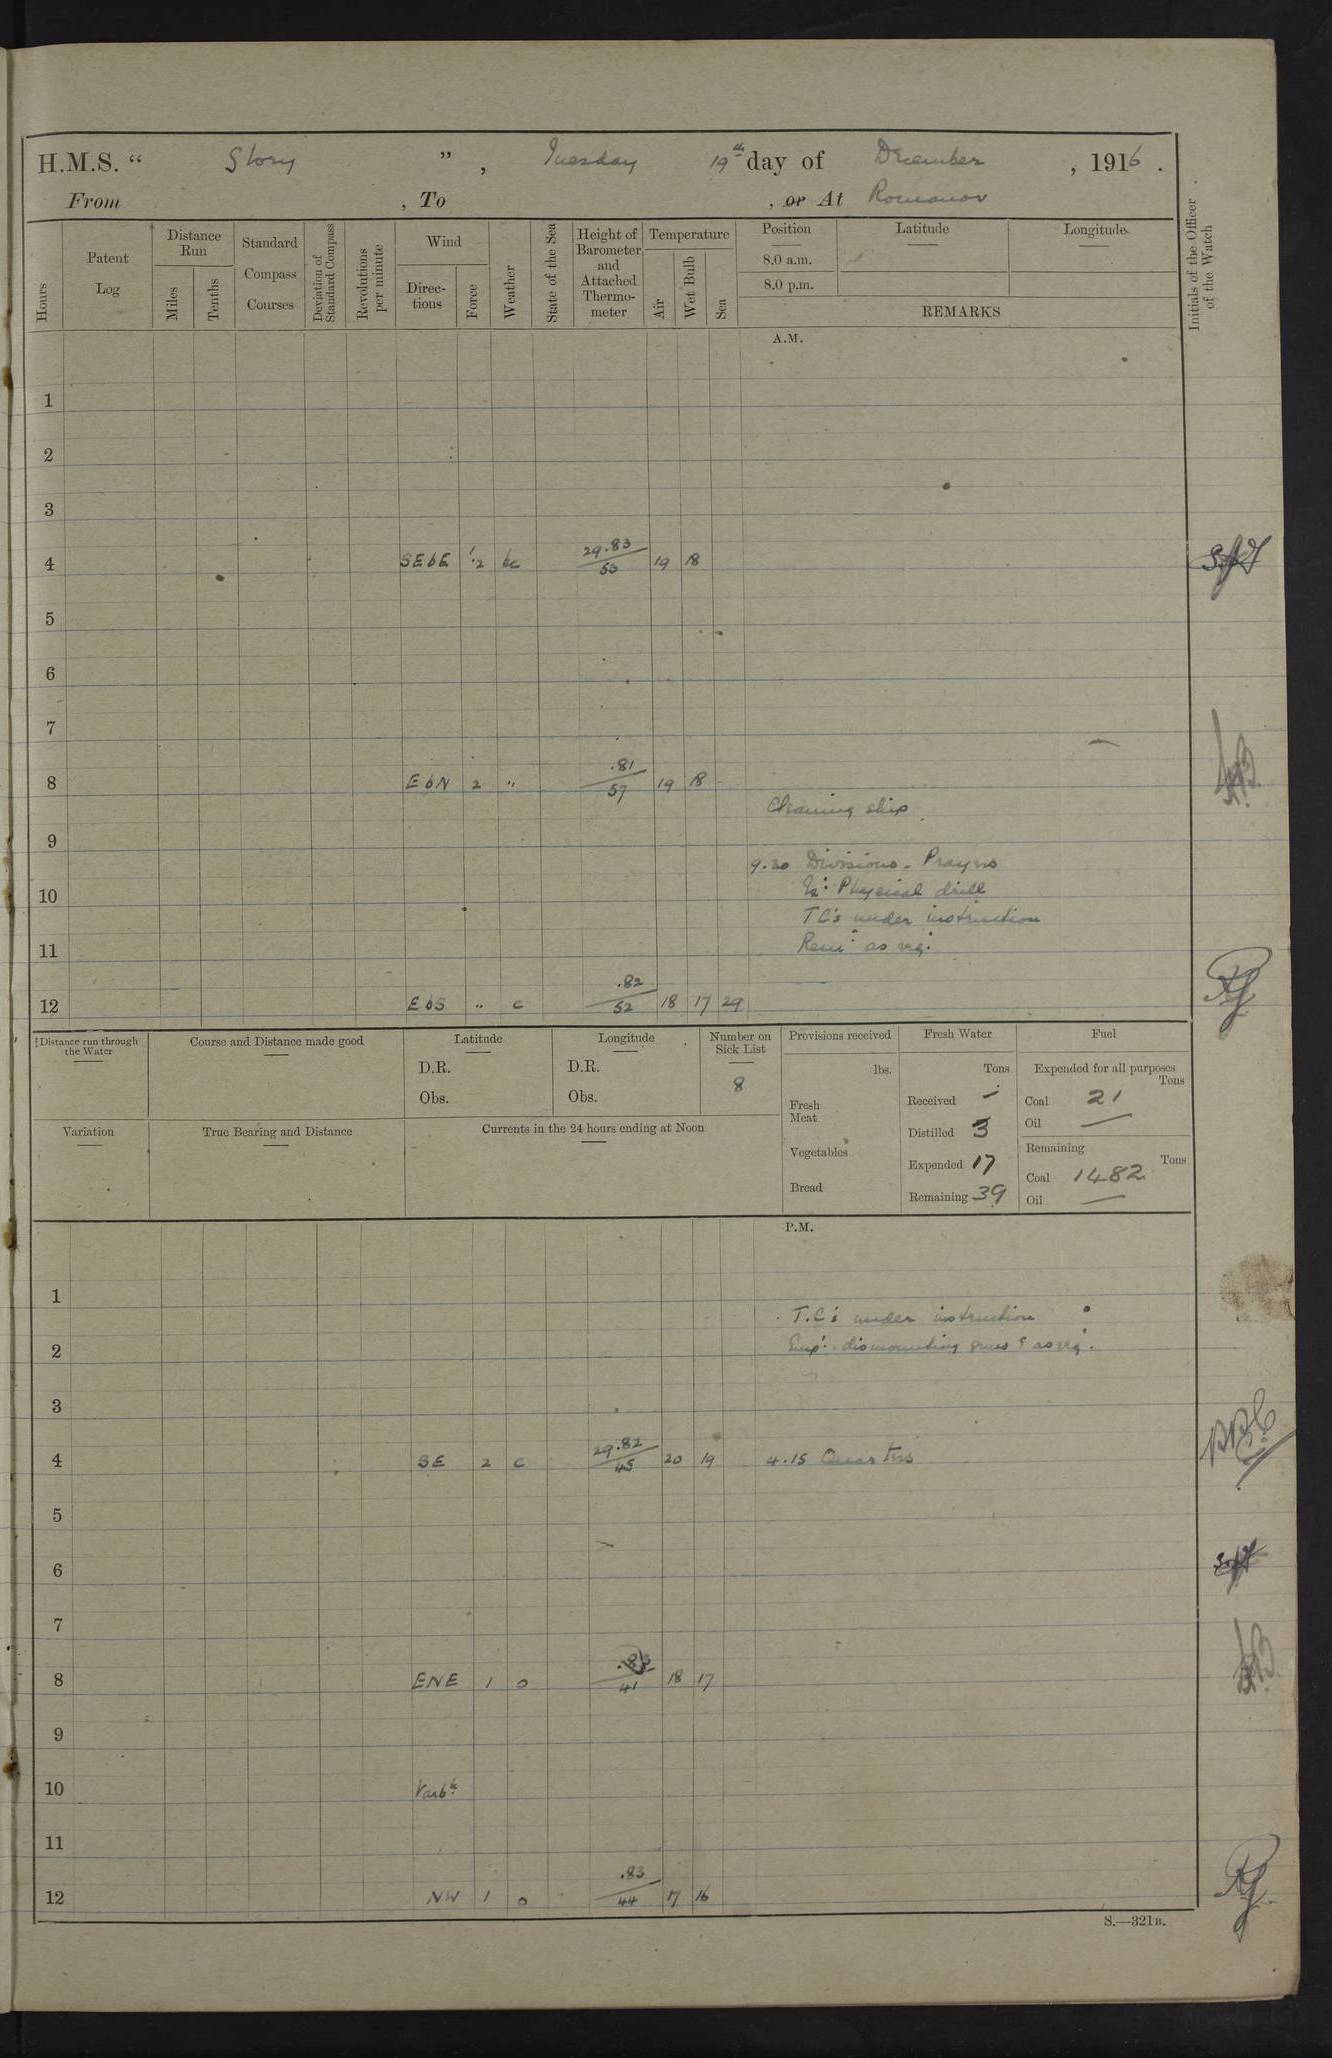 H.M.S. “ Glory ” , Tuesday 19th day of December , 1916 .
From , To , or At Romanov
Hours
Patent Log
Distance Run
Miles
Tenths
Standard Compass Courses
Deviation of Standard Compass
Revolutions per minute
Wind
Directions
Force
Weather
State of the Sea
Height of Barometer and Attached Thermometer
Temperature
Air
Wet Bulb
Sea
Position
8.0 a.m.
8.0 p.m.
Latitude
Longitude
REMARKS
Initials of the Officer of the Watch
A.M.
1
2
3
4 SEbE 1.2 bc 29.83/53 19 18
5
6
7
8 EbN 2 " .81/57 19 18
Cleaning ship
9
9.30 Divisions - Prayers
10 Ex: Physical drill
T C's under instruction
11 Rem: as req:
12 EbS " c .82/52 18 17 29
Distance run through the Water
Course and Distance made good
Latitude
D.R.
Obs.
Longitude
D.R.
Obs.
Number on Sick List
8
Provisions received
lbs.
Fresh Meat
Vegetables
Bread
Fresh Water
Tons
Received —
Distilled 3
Expended 17
Remaining 39
Fuel
Expended for all purposes
Tons
Coal 21
Oil —
Remaining
Tons
Coal 1482
Oil —
Variation
True Bearing and Distance
Currents in the 24 hours ending at Noon
P.M.
1
T.C's under instruction
2 Emp: dismounting guns & as req:.
3
4 SE 2 c 29.82/45 20 19 4.15 Quarters
5
6
7
8 ENE 1 o .83/41 18 17
9
10 Varble
11
12 NW 1 o .83/44 17 16
S.—321B.